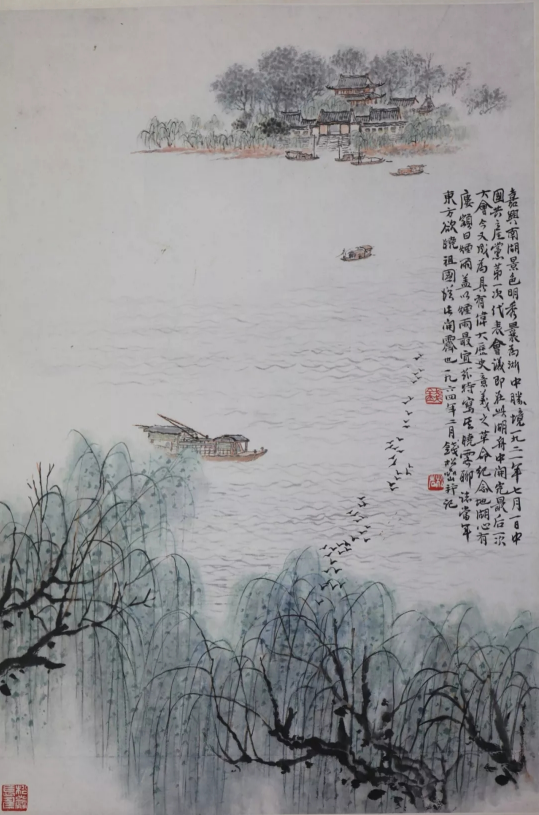 嘉興南湖景色明秀曩為浙中勝境一九二一年七月一日中
國共產黨第一次代表會議即在此湖舟中開完最后一次
大會今又成為具有偉大歷史意義之革命紀念地湖心有
廔額曰煙雨蓋以煙雨最宜茲特寫其曉霽聊誌當年
東方欲曉祖國從此開霽也一九六四年二月錢松喦并記